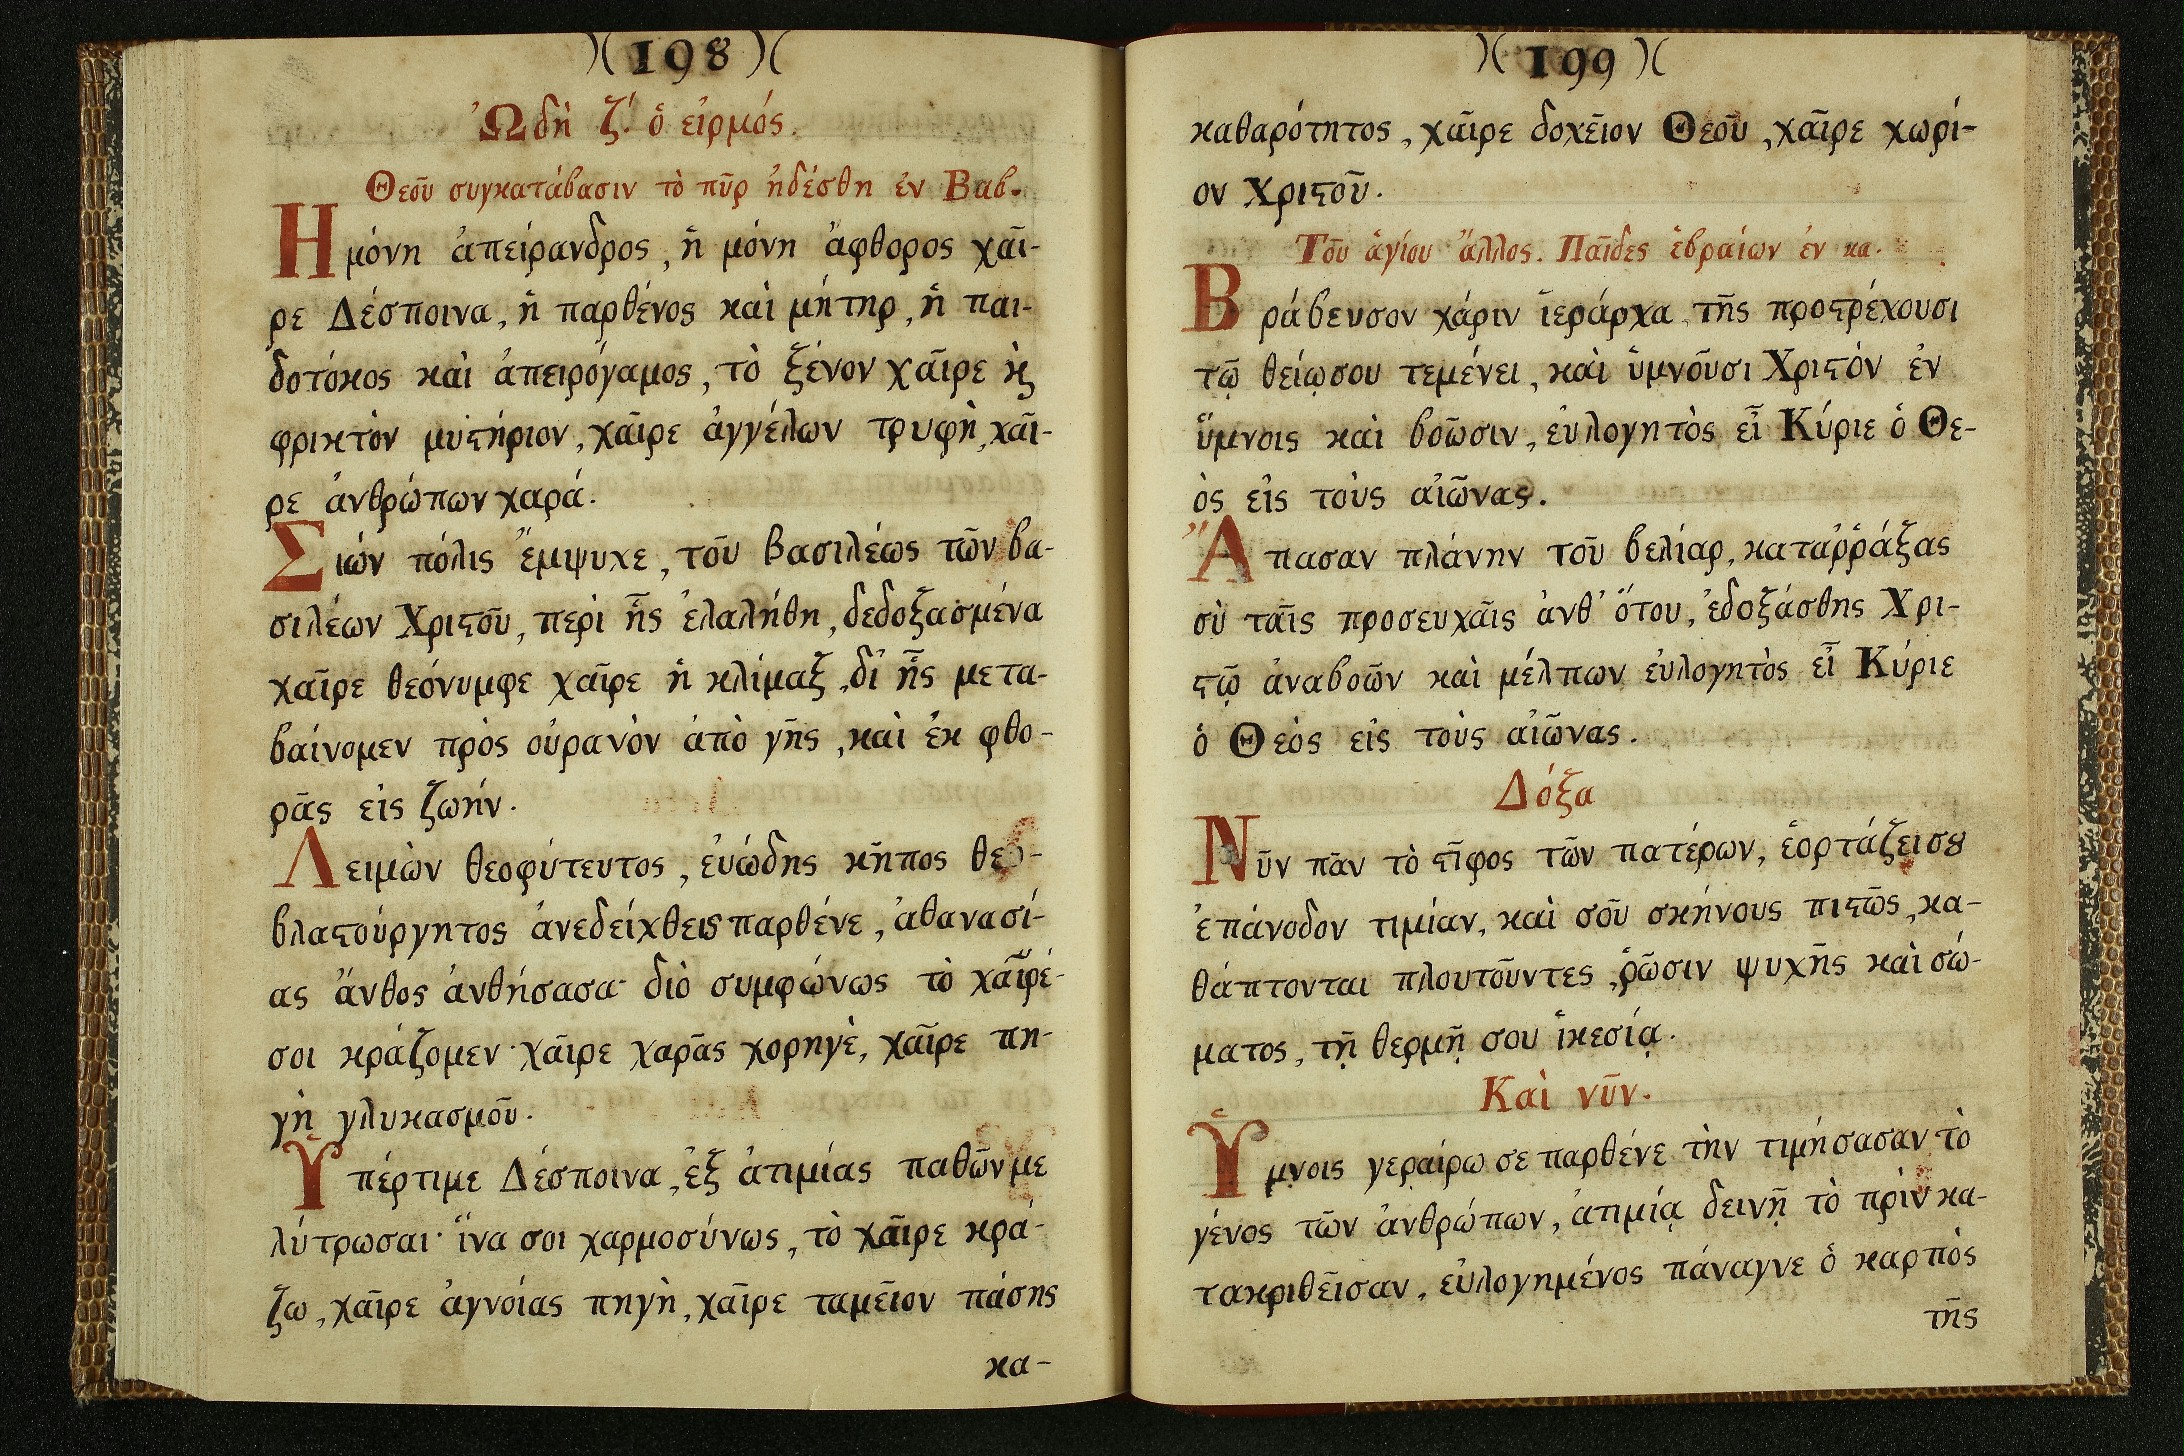 )( 198 )(
Ὠδὴ ζ΄. ὁ εἱρμός.
Θεοῦ συγκατάβασιν τὸ πῦρ ἠδέσθη ἐν Βαβ.
Η μόνη ἀπείρανδρος, ἡ μόνη ἄφθορος χαῖ-
ρε Δέσποινα, ἡ παρθένος καὶ μήτηρ, ἡ παι-
δοτόκος καὶ ἀπειρόγαμος, τὸ ξένον χαῖρε ϗ
φρικτὸν μυϛήριον, χαῖρε ἀγγέλων τρυφὴ, χαῖ-
ρε ἀνθρώπων χαρά.
Σιών πόλις ἔμψυχε, τοῦ βασιλέως τῶν βα-
σιλέων Χριϛοῦ, περὶ ἧς ἐλαλήθη, δεδοξασμένα
χαῖρε θεόνυμφε χαῖρε ἡ κλίμαξ, δι ἧς μετα-
βαίνομεν πρὸς οὐρανὸν ἀπὸ γῆς, καὶ ἐκ φθο-
ρᾶς εἰς ζωήν.
Λειμὼν θεοφύτευτος, ἐυώδης κῆπος θεο-
βλαϛούργητος ἀνεδείχθεις παρθένε, ἀθανασί-
ας ἄνθος ἀνθήσασα· διὸ συμφώνως τὸ χαῖρέ-
σοι κράζομεν· χαῖρε χαρᾶς χορηγὲ, χαῖρε πη-
γὴ γλυκασμοῦ.
Ὑπέρτιμε Δέσποινα, ἐξ ἀτιμίας παθῶν με
λύτρωσαι· ἵνα σοι χαρμοσύνως, τὸ χαῖρε κρά-
ζω, χαῖρε ἁγνοίας πηγὴ, χαῖρε ταμεῖον πάσης
κα-
)( 199 )(
καθαρότητος, χαῖρε δοχεῖον Θεοῦ, χαῖρε χωρί-
ον Χριϛοῦ.
Τοῦ ἁγίου ἄλλος. Παῖδες ἑβραίων ἐν κα.
Βράβευσον χάριν ἱεράρχα, τῆς προϛρέχουσι
τῷ θείῳσου τεμένει, καὶ ὑμνοῦσι Χριϛόν ἐν
ὕμνοις καὶ βοῶσιν, εὐλογητὸς εἶ Κύριε ὁ Θε-
ὸς εἰς τοὺς αἰῶνας.
Ἅπασαν πλάνην τοῦ βελίαρ, καταῤῥάξας
σὺ ταῖς προσευχαῖς ἀνθ᾽ ὅτου, ἐδοξάσθης Χρι-
ϛῷ ἀναβοῶν καὶ μέλπων εὐλογητὸς εἶ Κύριε
ὁ Θεὸς εἰς τοὺς αἰῶνας.
Δόξα
Νῦν πᾶν τὸ ϛῖφος τῶν πατέρων, ἑορτάζει σȣ
ἐπάνοδον τιμίαν, καὶ σοῦ σκήνους πιϛῶς, κα-
θάπτονται πλουτοῦντες, ῥῶσιν ψυχῆς καὶ σώ-
ματος, τῇ θερμῇ σου ἱκεσίᾳ.
Καὶ νῦν.
Ὕμνοις γεραίρω σε παρθένε τὴν τιμήσασαν τὸ
γένος τῶν ἀνθρώπων, ἀτιμίᾳ δεινῇ τὸ πρὶν κα-
τακριθεῖσαν, εὐλογημένος πάναγνε ὁ καρπὸς
τῆς